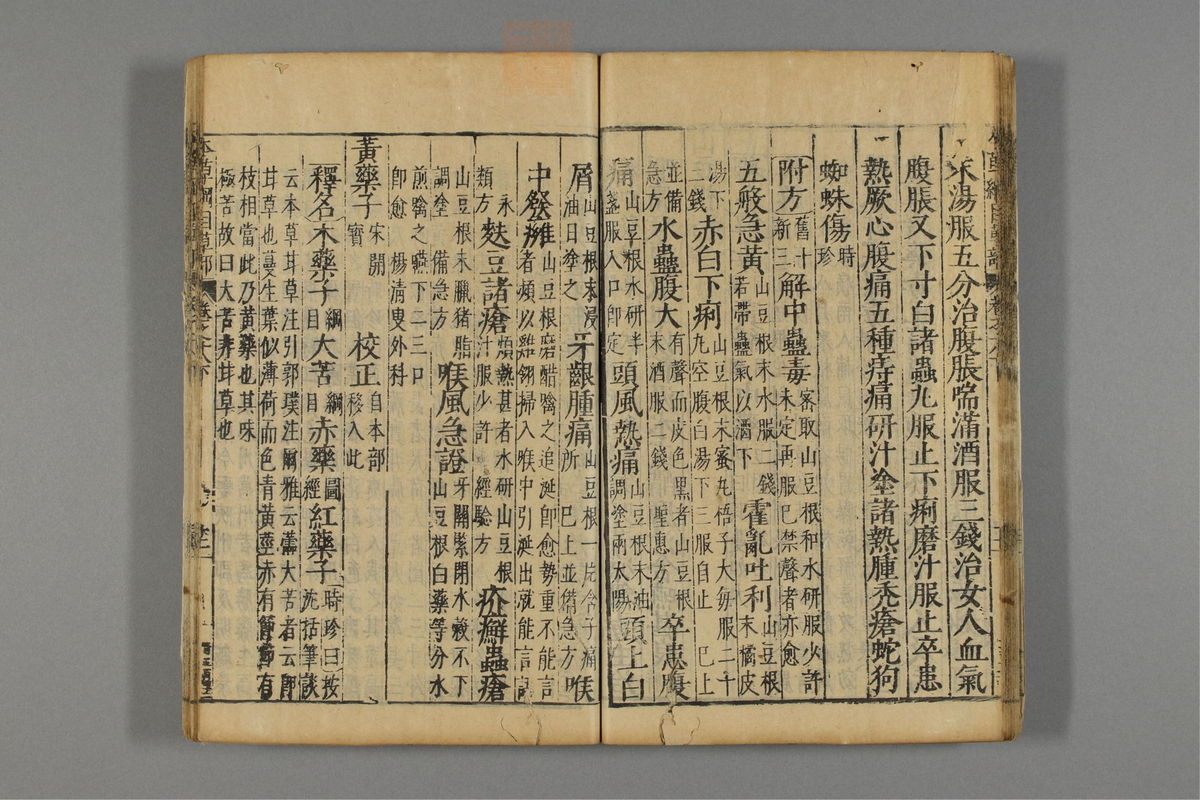 末湯服五分治腹脹喘滿酒服三錢治女人血氣
腹脹又下寸白諸蟲丸服止下痢磨汁服止卒患
熱厥心腹痛五種痔痛研汁塗諸熱腫禿瘡蛇狗
蜘蛛傷時珍
附方舊十新三解中蠱毒密取山豆根和水研服少許未定再服已禁聲者亦愈
五般急黃山豆根末水服二錢若帶蠱氣以酒下霍亂吐利山豆根末橘皮
湯下三錢赤白下痢山豆根末蜜丸梧子大每服二十丸空腹白湯下三服自止已上
並備急方水蠱腹大有聲而皮色黑者山豆根末酒服二錢聖惠方卒患腹
痛山豆根水研半盞服入口即定頭風熱痛山豆根末油調塗兩太陽頭上白
屑山豆根末浸油日塗之牙齦腫痛山豆根一片含于痛所已上並備急方喉
中發癰山豆根磨醋噙之追涎即愈勢重不能言者頻以雞翎掃入喉中引涎出就能言語
永類方麩豆諸瘡煩熱甚者水研山豆根汁服少許經驗方疥癬蟲瘡
山豆根末臘猪脂調塗備急方喉風急證牙關緊閉水穀不下山豆根白藥等分水
煎噙之嚥下二三口即愈楊清叟外科
黃藥子宋開寶校正自本部移入此
釋名木藥子綱目大苦綱目赤藥圖經紅藥子時珍曰按沈括筆談
云本草甘草注引郭璞注爾雅云蘦大苦者云即
甘草也蔓生葉似薄荷而色青黃莖赤有節節有
枝相當此乃黃藥也其味
極苦故曰大苦非甘草也
本草綱目草部